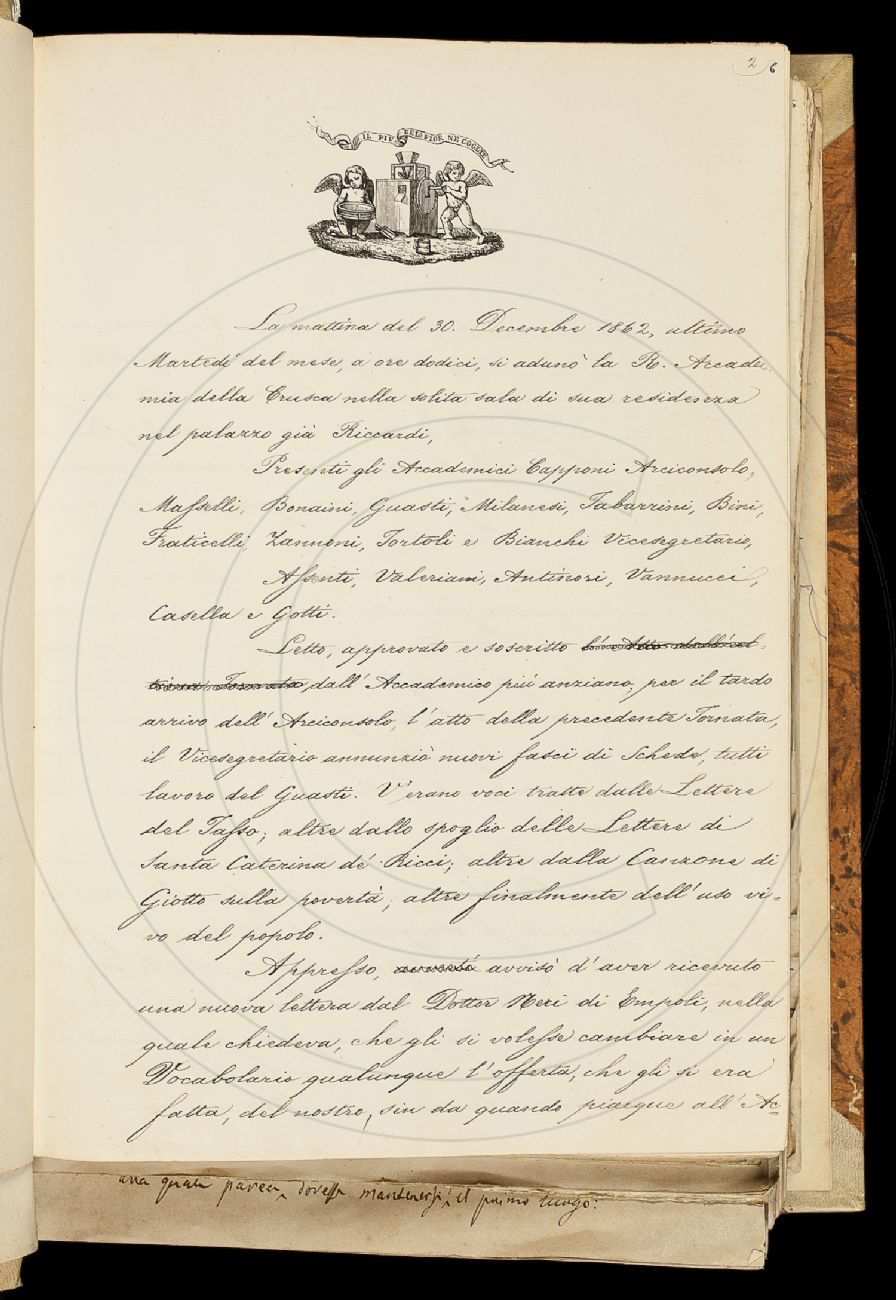 2 6
IL PIU BEL FIOR NE COGLIE
La mattina del 30. Decembre 1862, ultimo
Martedì del mese, a ore dodici, si adunò la R. Accade-
mia della Crusca nella solita sala di sua residenza
nel palazzo già Riccardi,
Presenti gli Accademici Capponi Arciconsolo,
Masselli, Bonaini, Guasti, Milanesi, Tabarrini, Bini,
Fraticelli, Zannoni, Tortoli e Bianchi Vicesegretario,
Assenti, Valeriani, Antinori, Vannucci,
Casella e Gotti.
Letto, approvato e soscritto l'Atto dell'ul-
tima Tornata, dall'Accademico più anziano, per il tardo
arrivo dell'Arciconsolo, l'atto della precedente Tornata,
il Vicesegretario annunziò nuovi fasci di Schede, tutti
lavoro del Guasti. V'erano voci tratte dalle Lettere
del Tasso; altre dallo spoglio delle Lettere di
Santa Caterina de' Ricci; altre dalla Canzone di
Giotto sulla povertà; altre finalmente dell'uso vi-
vo del popolo.
Appresso, avvisò d'aver ricevuto
una nuova lettera dal Dottor Neri di Empoli, nella
quale chiedeva, che gli si volesse cambiare in un
Vocabolario qualunque l'offerta, che gli si era
fatta, del nostro, sin da quando piacque all'Ac-
una quale parea dovesse mantenersi il primo luogo.